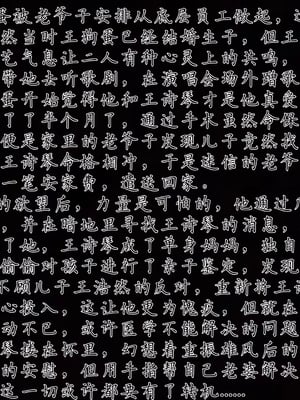 言被老爷子安排从底层员工做起,
然当时王狗蛋已经结婚生子,但王
艺气息让二人有种心灵上的共鸣,
带他去听歌剧,在演唱会场外蹭歌
蛋开始觉得他和王诗琴才是他真爱
了了半个月了,通过手术虽然命保
便是家里的老爷子发现儿子竟然找
王诗琴命格相冲,于是迷信的老爷
一笔安家费,遣送回家。
的欲望后,力量是可怕的,他通过
,并在暗地里寻找王诗琴的消息,
了她,王诗琴成了单身妈妈,独自
偷偷对孩子进行了亲子鉴定,发现
不顾儿子王浩然的反对,重新将王
心投入,这让他更为愧疚,但就在
动不已,或许医学不能解决的问题
琴搂在怀里,幻想着重振雄风后的
的安慰,但用手指帮自己老婆解决
这一切或许都要有了转机......